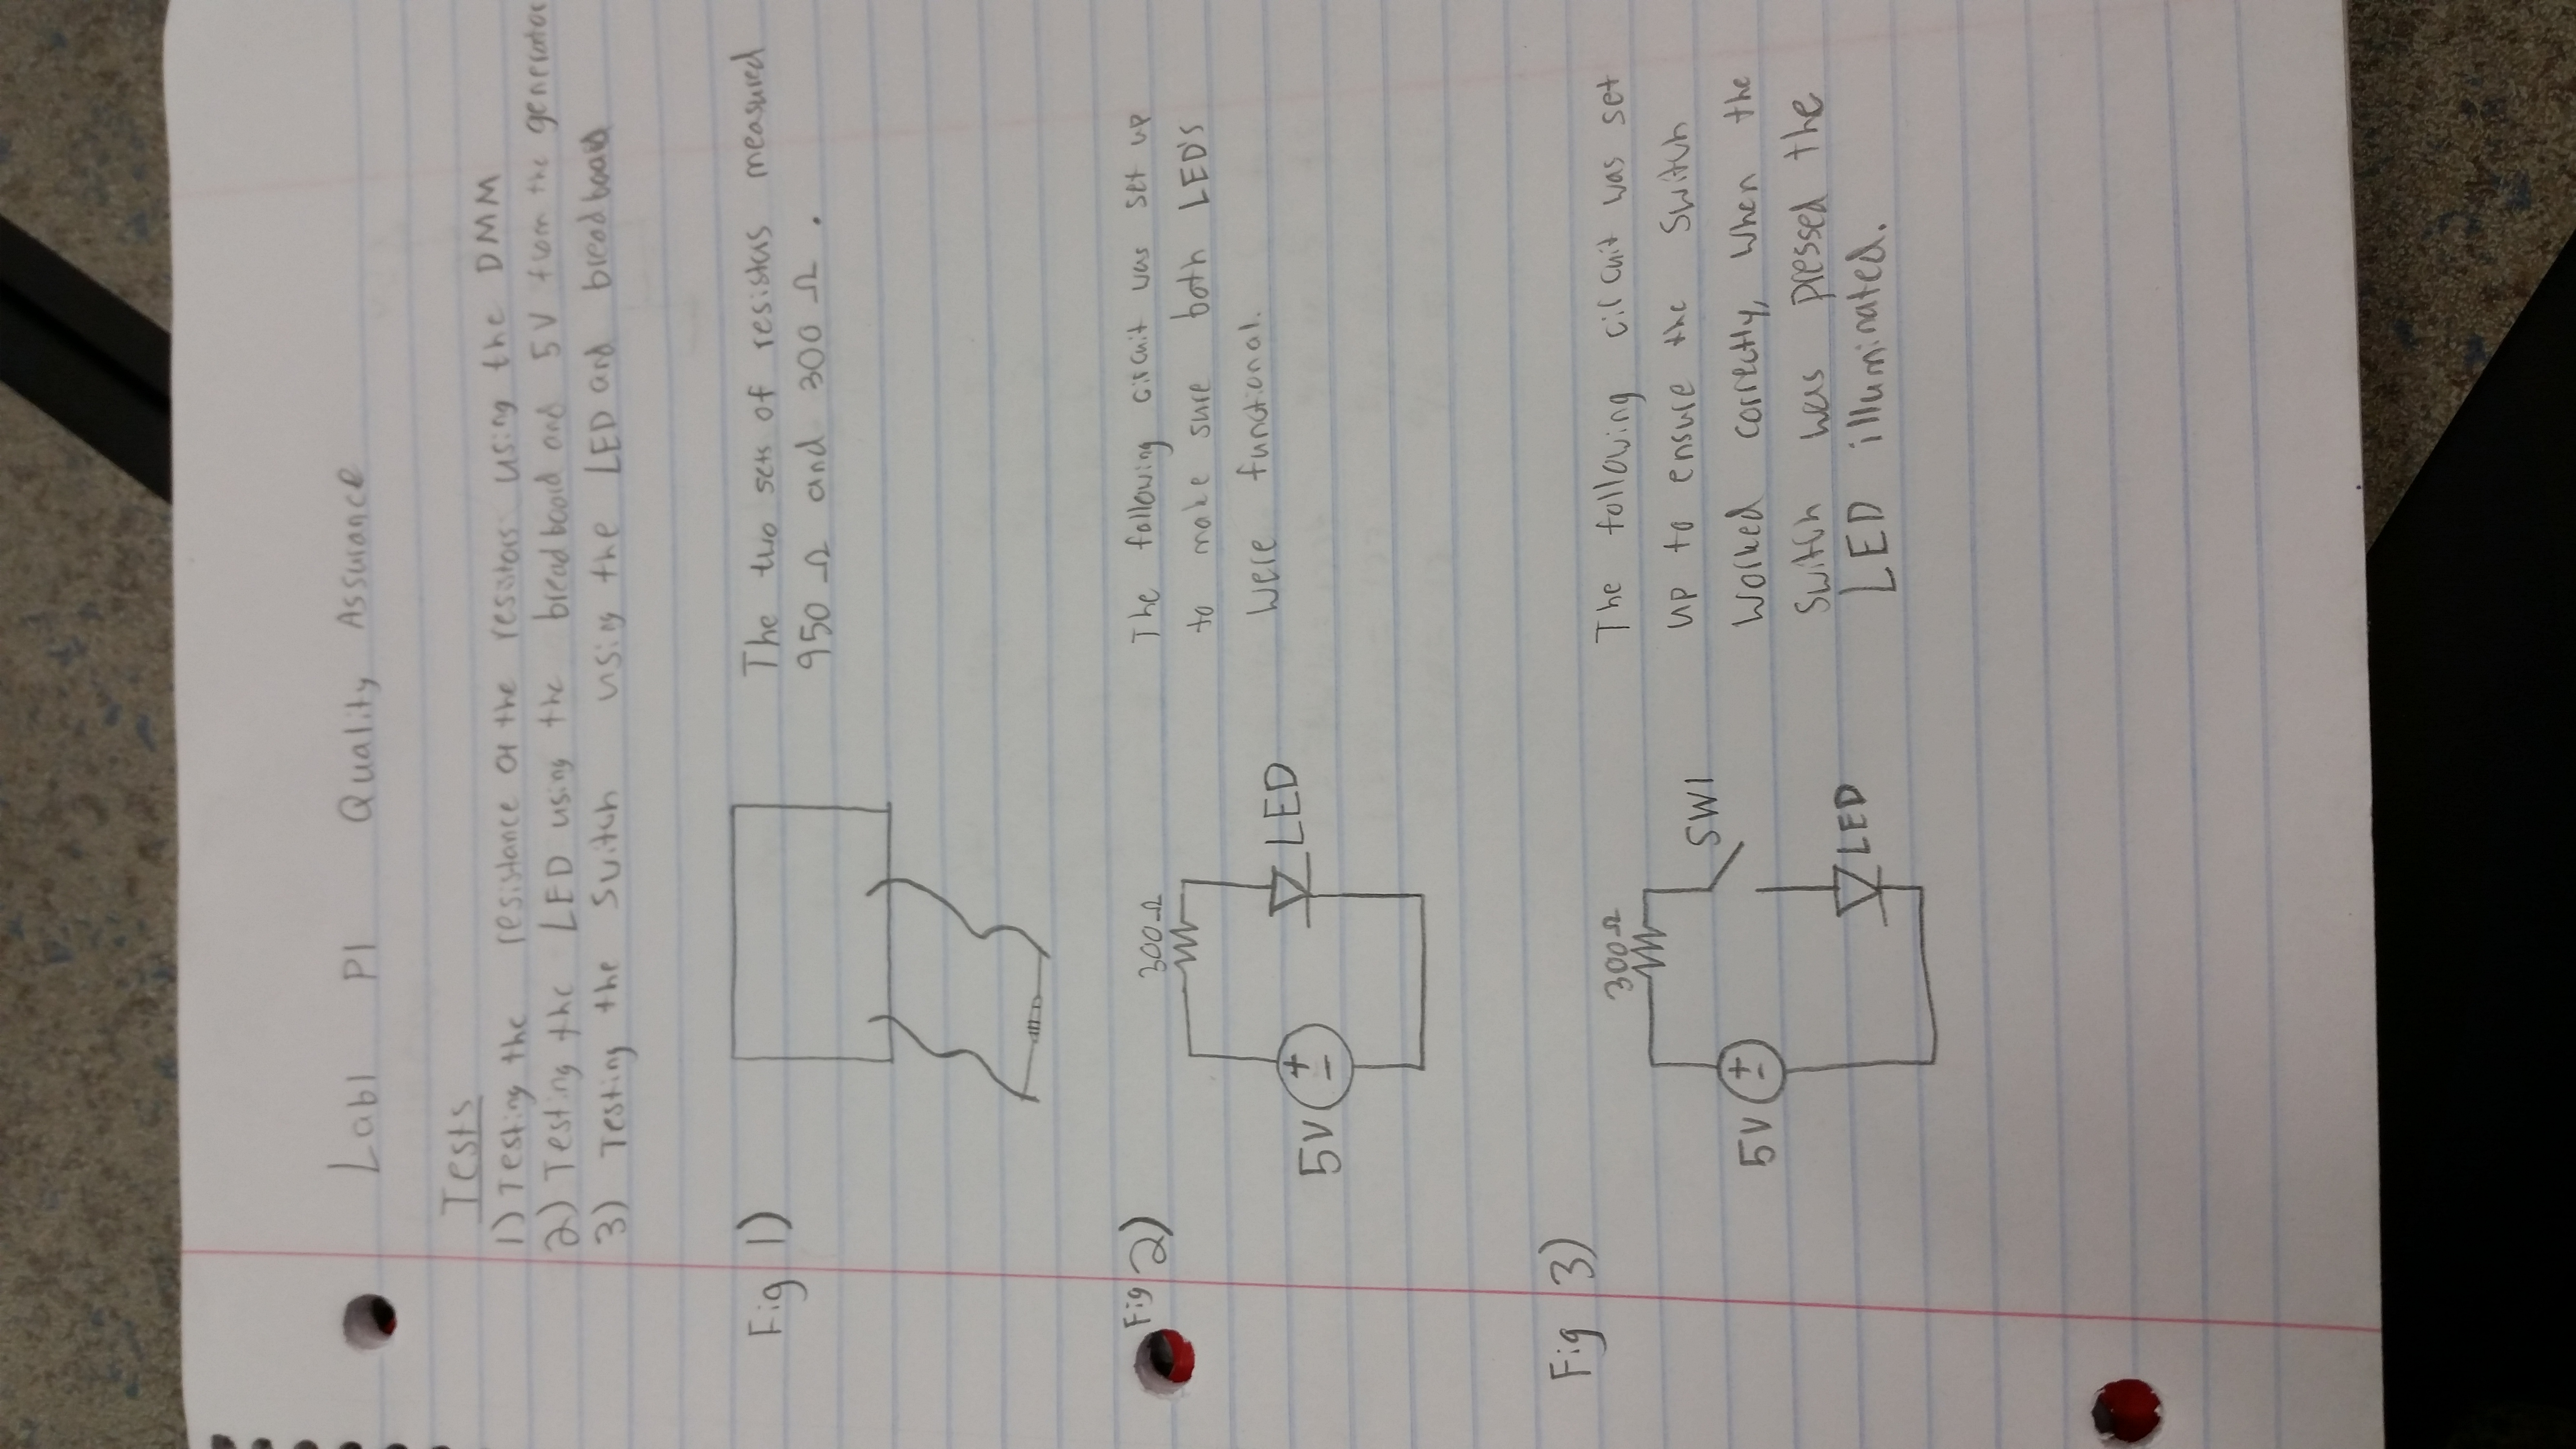 Lab1 P1 Quality Assurance
Tests
1) Testing the resistance of the resistors using the DMM
2) Testing the LED using the breadboard and 5V from the generator
3) Testing the Switch using the LED and breadboard
Fig 1)
The two sets of resistors measured
950 Ω and 300 Ω .
Fig 2)
300Ω
5V
+
−
LED
The following circuit was set up
to make sure both LED's
were functional.
Fig 3)
300Ω
SW1
5V
+
−
LED
The following circuit was set
up to ensure the switch
worked correctly, when the
switch was pressed the
LED illuminated.